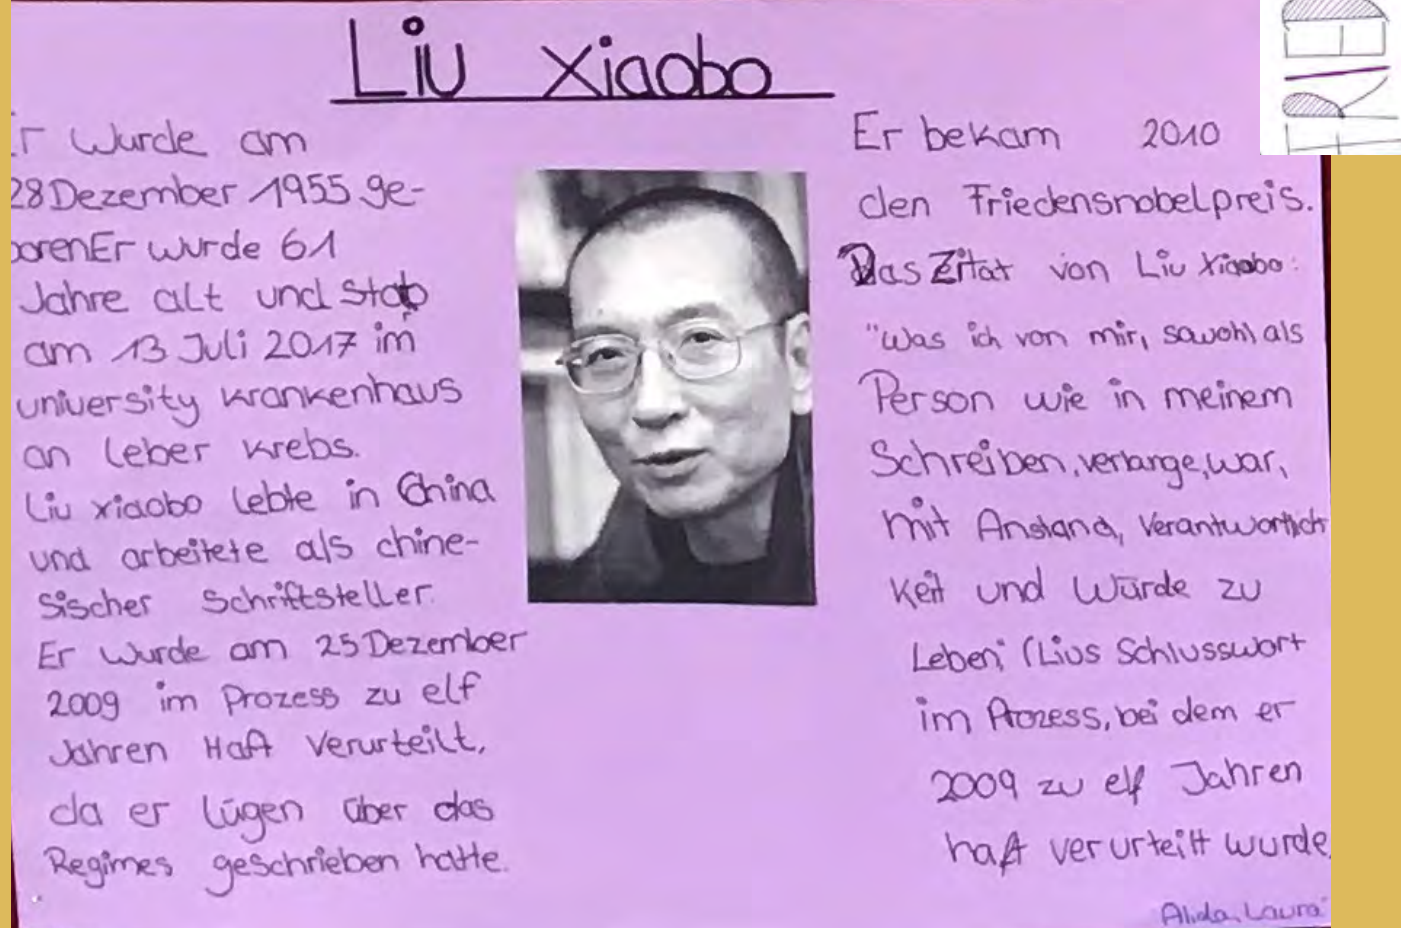 Liu Xiaobo
Er wurde am
28 Dezember 1955 ge-
boren Er wurde 61
Jahre alt und starb
am 13 Juli 2017 im
university krankenhaus
an leber krebs.
Liu xiaobo lebte in China
und arbeitete als chine-
sischer Schriftsteller.
Er wurde am 25 Dezember
2009 im Prozess zu elf
Jahren Haft verurteilt,
da er lügen über das
Regimes geschrieben hatte.
Er bekam 2010
den Friedensnobelpreis.
Das Zitat von Liu Xiaobo:
"Was ich von mir, sowohl als
Person wie in meinem
Schreiben, verlange, war,
mit Anstand, Verantwortlich
keit und Würde zu
Leben," (Lius Schlusswort
im Prozess, bei dem er
2009 zu elf Jahren
haft verurteilt wurde.
Alida, Laura